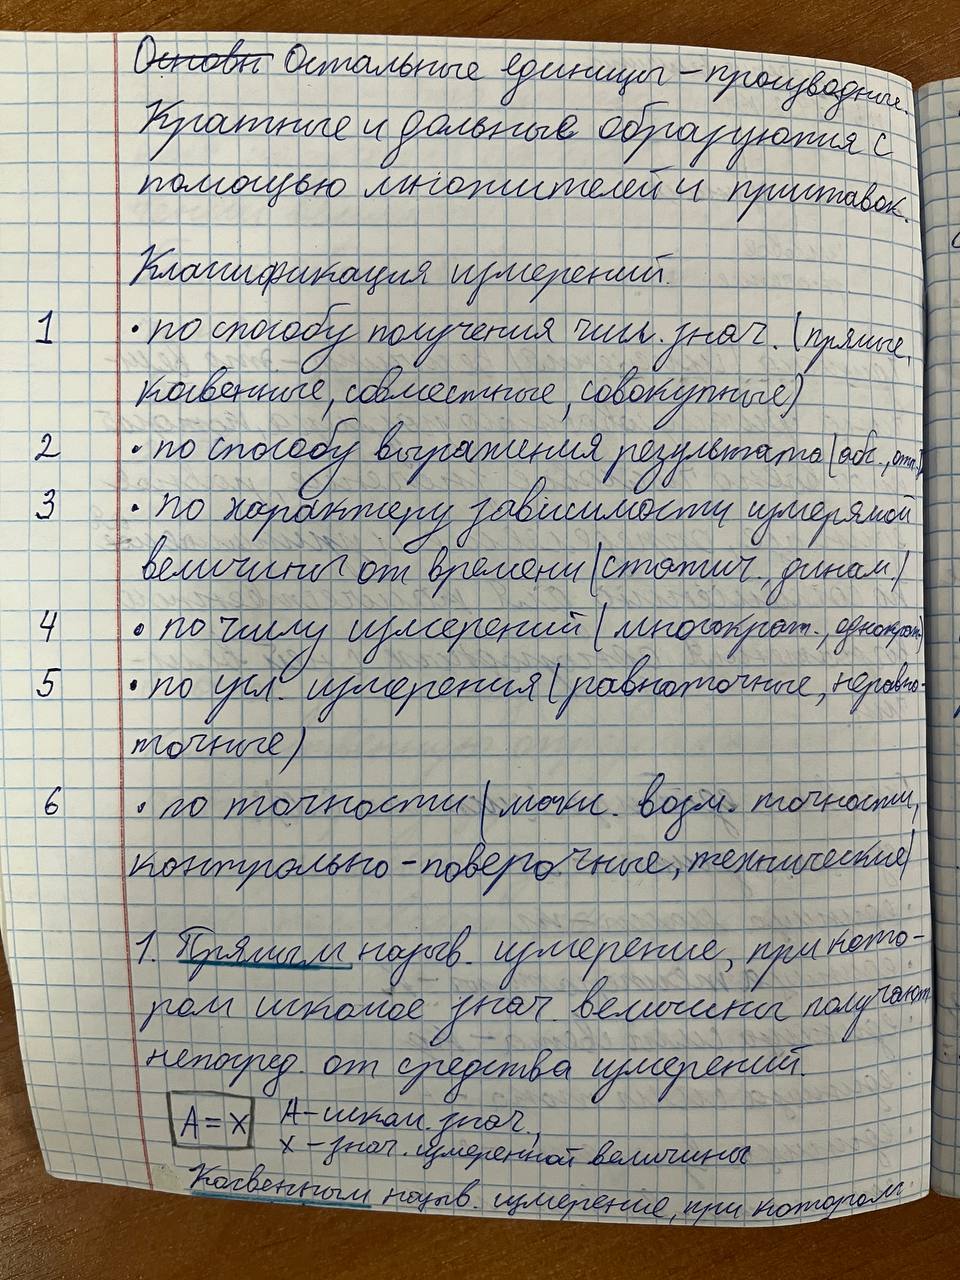 Основн Остальные единицы – производные.
Кратные и дольные образуются с
помощью множителей и приставок.
Классификация измерений.
1 • по способу получения числ. знач. (прямые,
косвенные, совместные, совокупные)
2 • по способу выражения результата (абс., отн.)
3 • по характеру зависимости измерямой
величины от времени (статич., динам.)
4 • по числу измерений (многократ., однократ.)
5 • по усл. измерения (равноточные, неравно-
точные)
6 • по точности (макс. возм. точности,
контрольно-поверочные, технические)
1. Прямым назыв. измерение, при кото-
ром искомое знач. величины получают
непосред. от средства измерений.
A = x A – иском. знач.,
x – знач. измеренной величины
Косвенным назыв. измерение, при котором